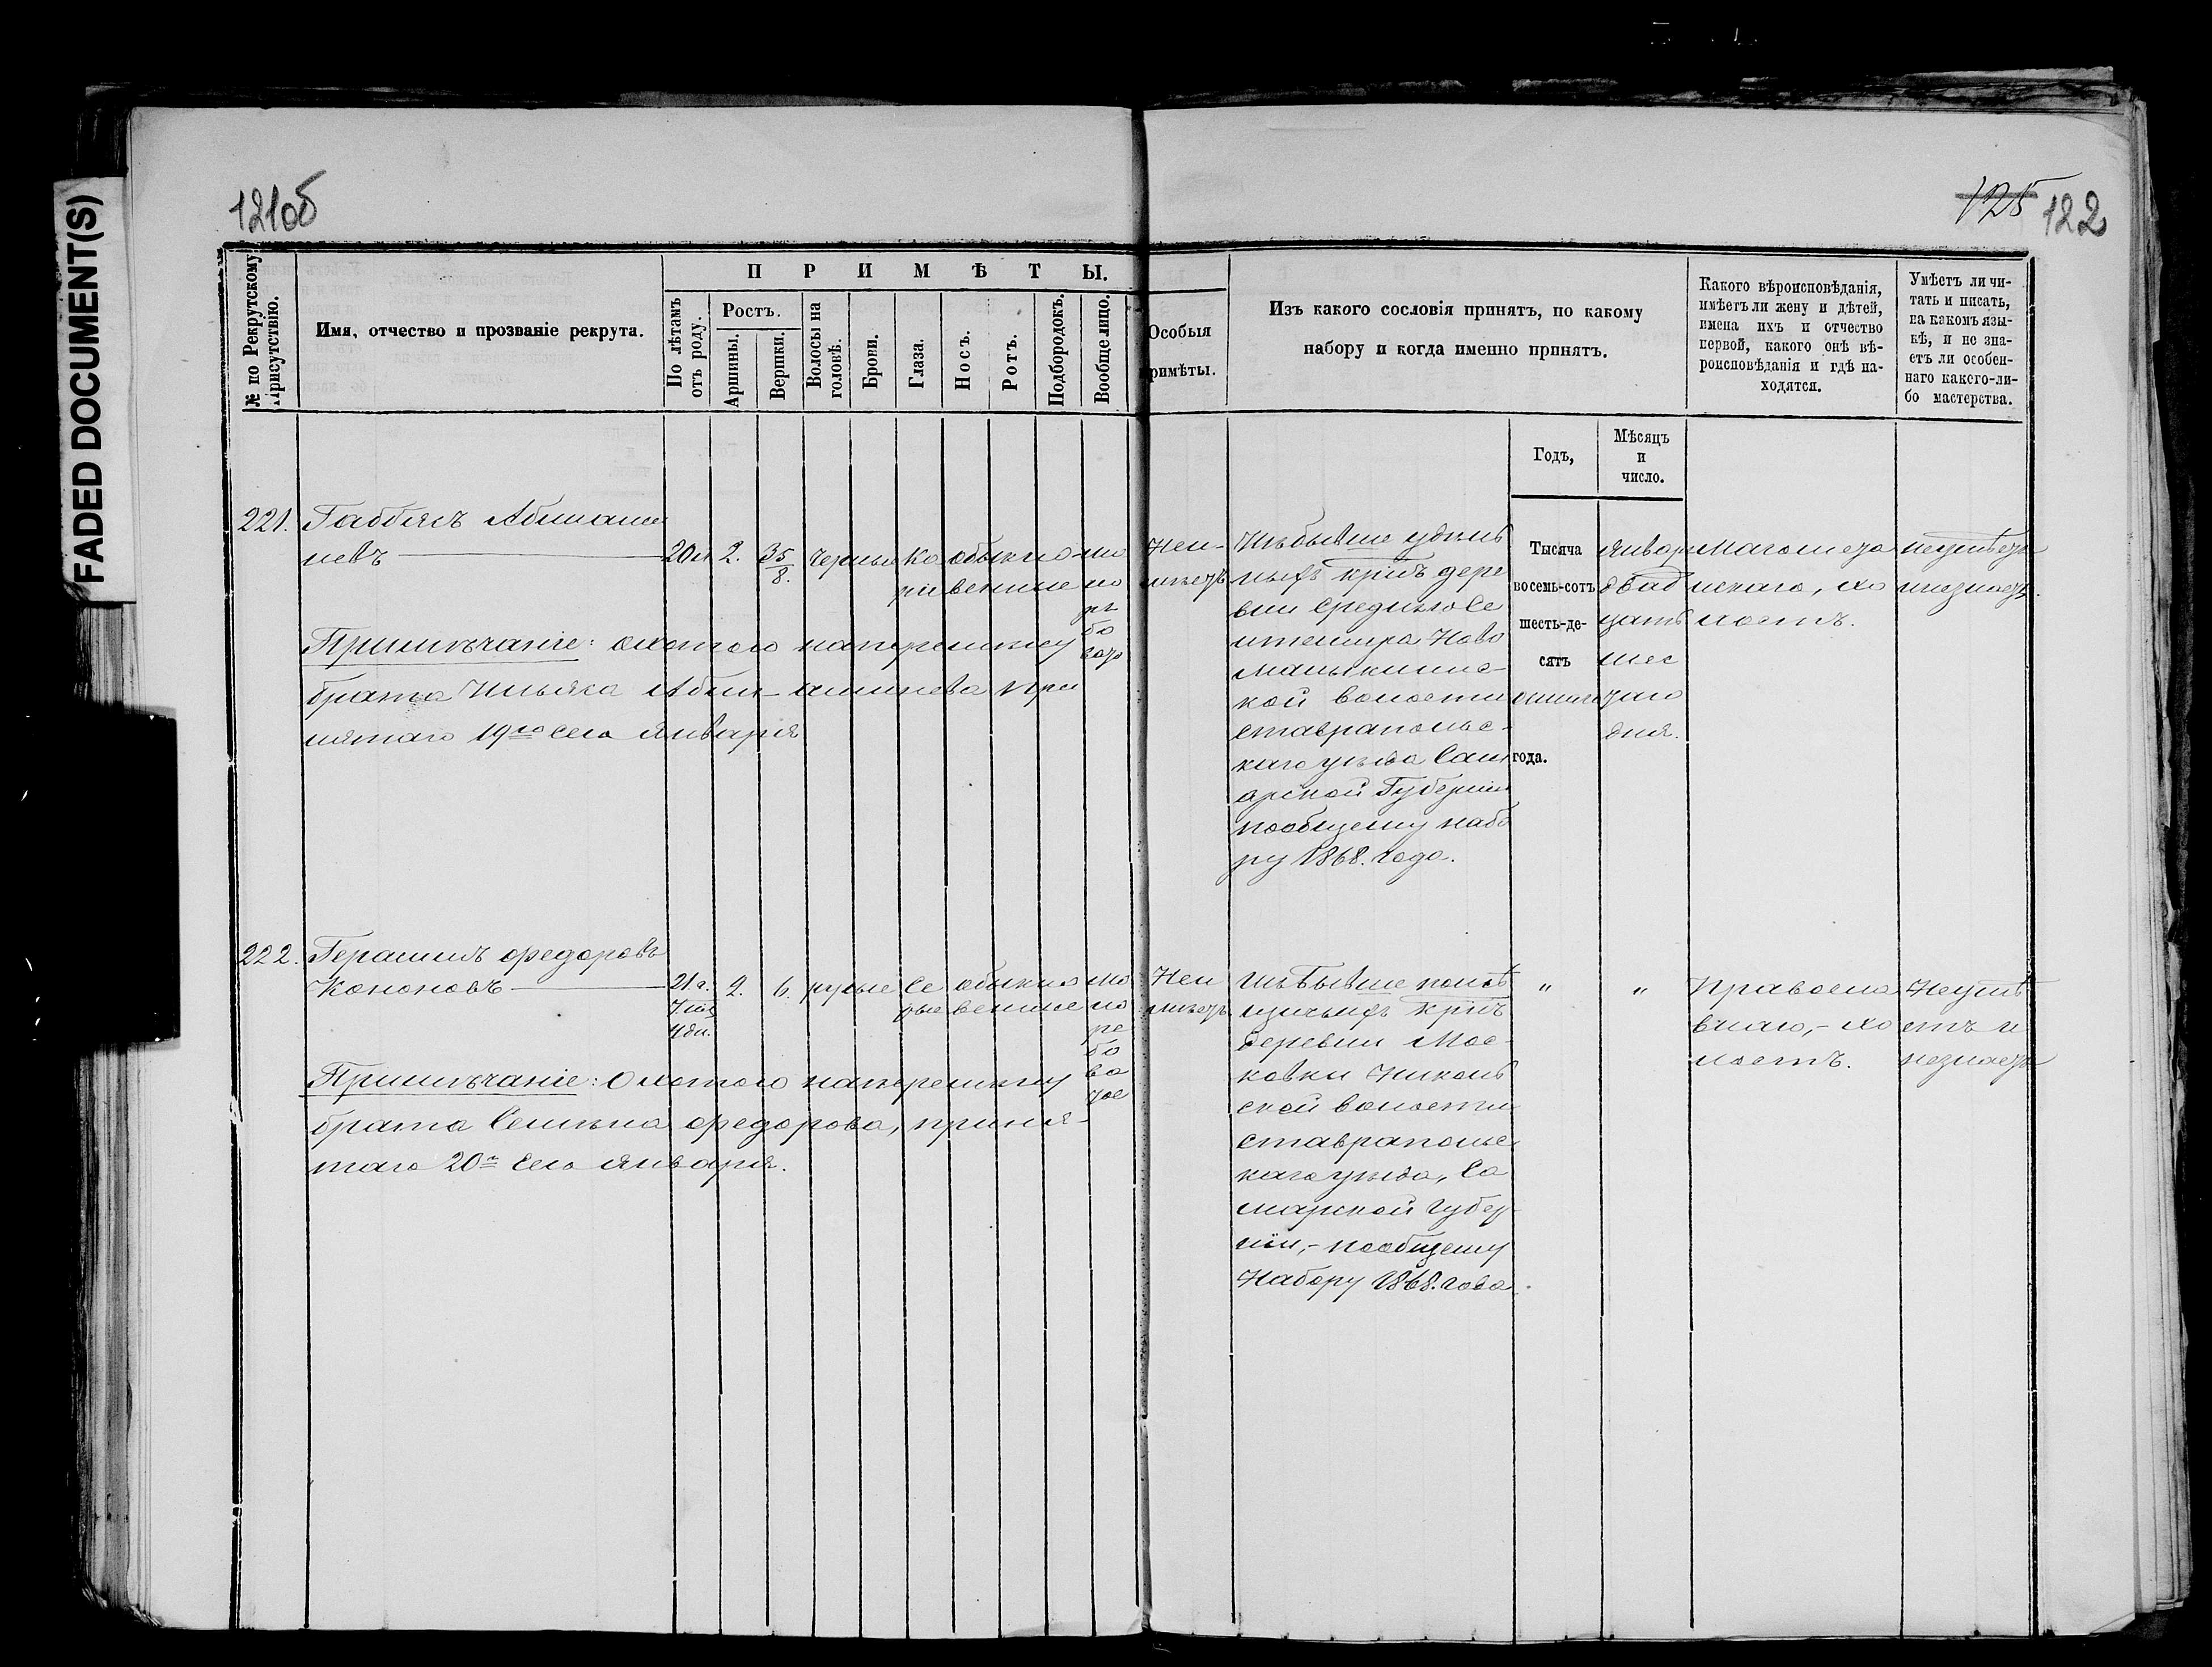 FADED DOCUMENT(S)
121об
125 122
№ по Рекрутскому Присутствію.
Имя, отчество и прозваніе рекрута.
ПРИМѢТЫ.
По лѣтамъ отъ роду.
Ростъ.
Аршины.
Вершки.
Волосы на головѣ.
Брови.
Глаза.
Носъ.
Ротъ.
Подбородокъ.
Вообще лицо.
Особыя
примѣты.
Изъ какого сословія принятъ, по какому
набору и когда именно принятъ.
Какого вѣроисповѣданія,
имѣетъ ли жену и дѣтей,
имена ихъ и отчество
первой, какого онѣ вѣ-
роисповѣданія и гдѣ на-
ходятся.
Умѣетъ ли чи-
тать и писать,
на какомъ язы-
кѣ, и не зна-
етъ ли особен-
наго какого-ли-
бо мастерства.
Годъ,
Мѣсяцъ
и
число.
221.
невъ
2.
3 5/8.
черные
ка
рие
обыкно
венные
Неи-
мѣетъ
Изъ бывше удѣль
ныхъ крнъ дере
вни Средняго Се
интемира Ново
Малыклинс-
кой волости
Ставропольс-
каго уѣзда Сам
арской Губерніи
пообщему набо
ру 1868. года.
Тысяча
восемь-сотъ
шесть-де-
сятъ
осьмаго
года.
Январ
двад
цать
шес
таго
дня.
Магомета
нскаго, хо
лостъ.
Неумѣетъ
инезнаетъ.
Примѣчаніе: охотою наперемѣну
брата Ильяса при
нятаго 19го сего Января
222.
Герасимъ Федоровъ
Кононовъ
21 г.
2.
6.
русые
се
рые
обыкно
венные
Неи
мѣетъ
Изъ бывше помѣ
щичьихъ крнъ
деревни Мос-
ковки Николь
ской волости
Ставропольс
каго уѣзда, Са
марской Губер
ніи,- пообщему
Набору 1868. года.
"
"
Правосла
внаго,- хо
лостъ.
Неумѣ
етъ и
незнаетъ
Примѣчаніе: Охотою наперемѣну
брата Семена Федорова, приня-
таго 20го сего Января.